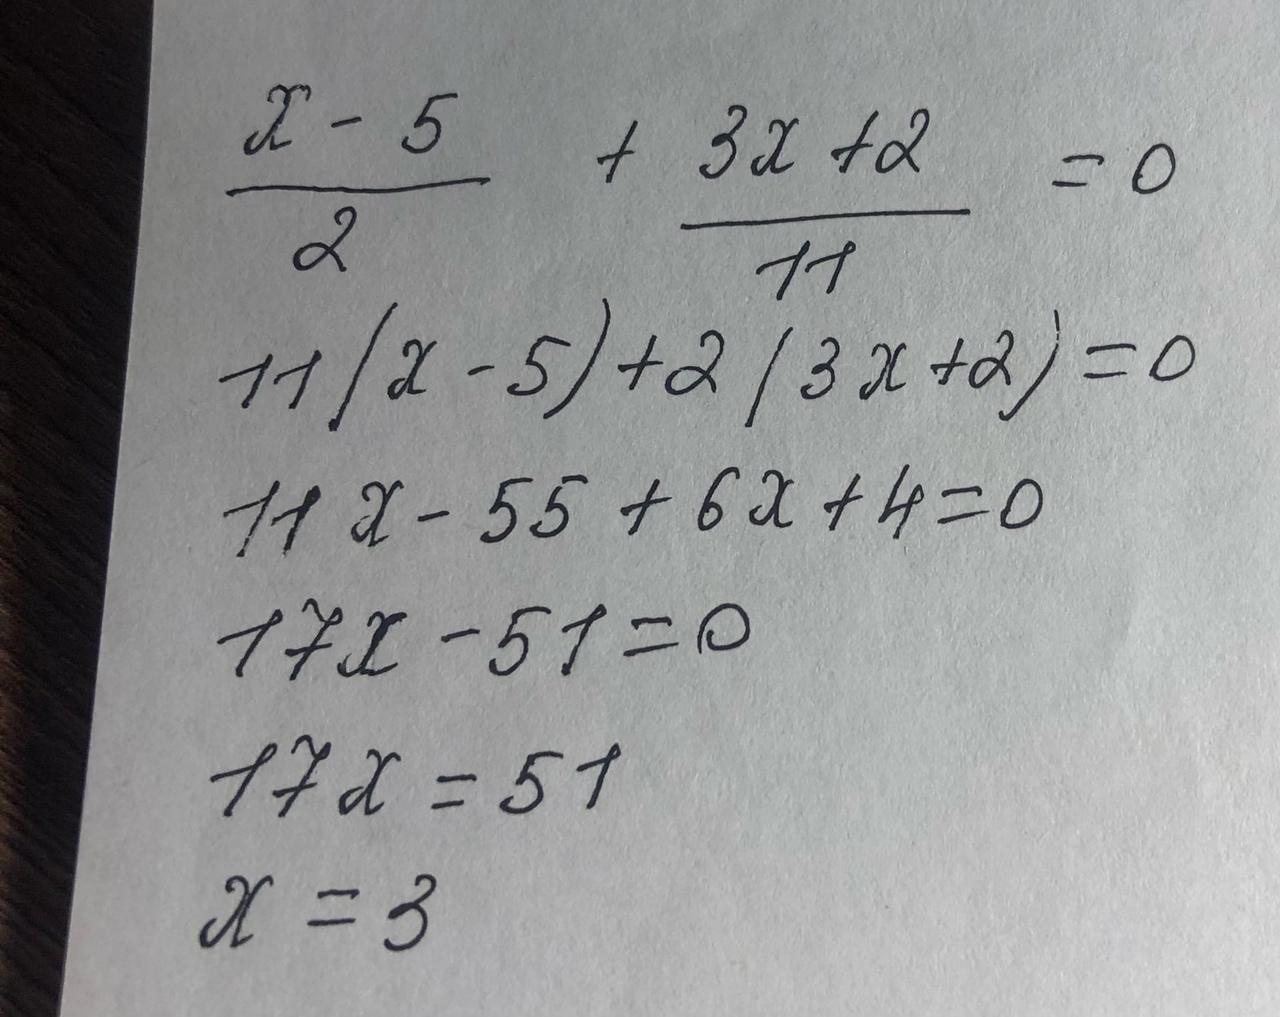 (x - 5)/2 + (3x + 2)/11 = 0
11(x - 5) + 2(3x + 2) = 0
11x - 55 + 6x + 4 = 0
17x - 51 = 0
17x = 51
x = 3